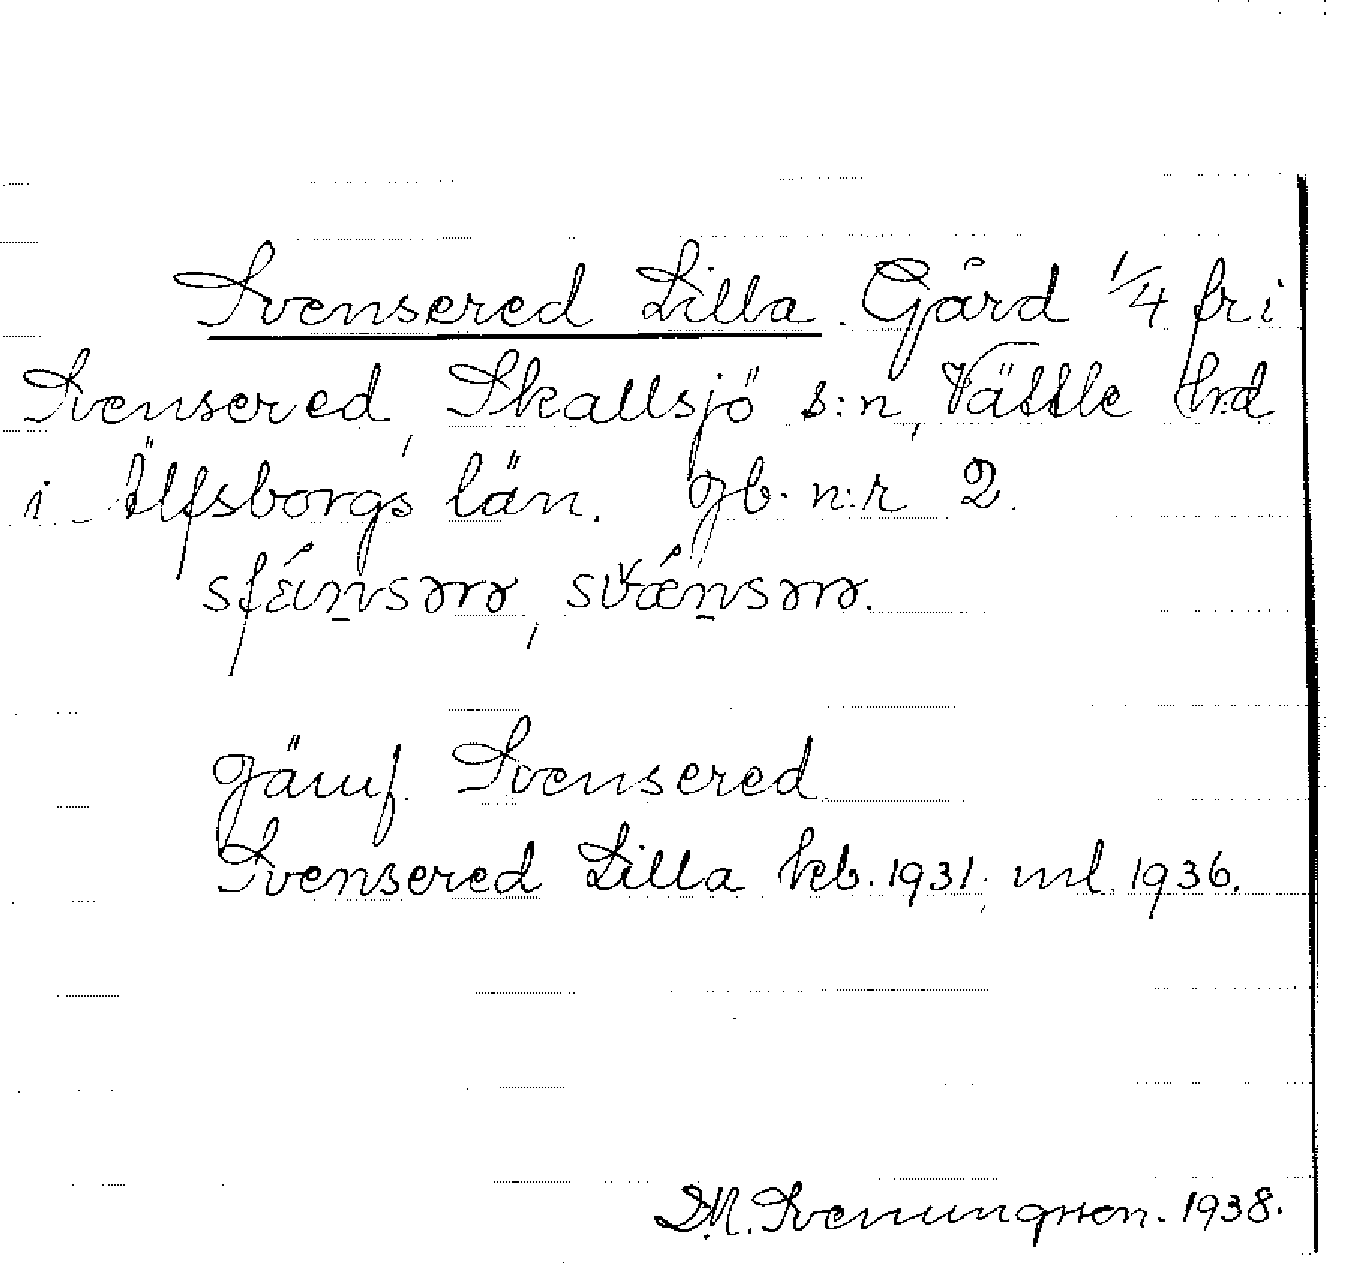 Svensered Lilla. Gård 1/4 fr i
Svensered, Skallsjö s:n, Vättle hrd
i Älfsborgs län. Jb. n:r 2.
Jämf. Svensered
Svensered Lilla kb. 1931; ml. 1936.
D.M. Svenungsson. 1938.